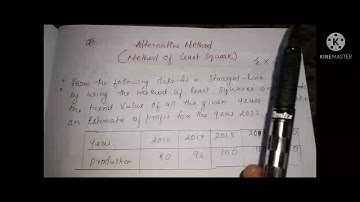 Alternative Method
(Method of Least Square)
From the following data fit a straight-line
by using the method of least squares an
the trend value of all the given years
an Estimate of profit for the year 2023
Years 2016 2017 2018
production 80 96 100
KINEMASTER